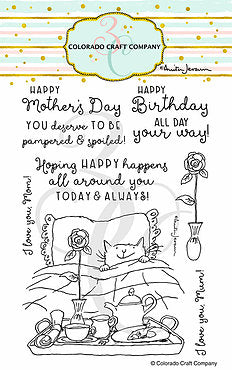 COLORADO CRAFT COMPANY
HAPPY
Mother's Day
YOU deserve TO BE
pampered & spoiled!
HAPPY
Birthday
ALL DAY
your way!
Hoping HAPPY happens
all around you
TODAY & ALWAYS!
I love you, Mom!
I love you, Mum!
© Colorado Craft Company